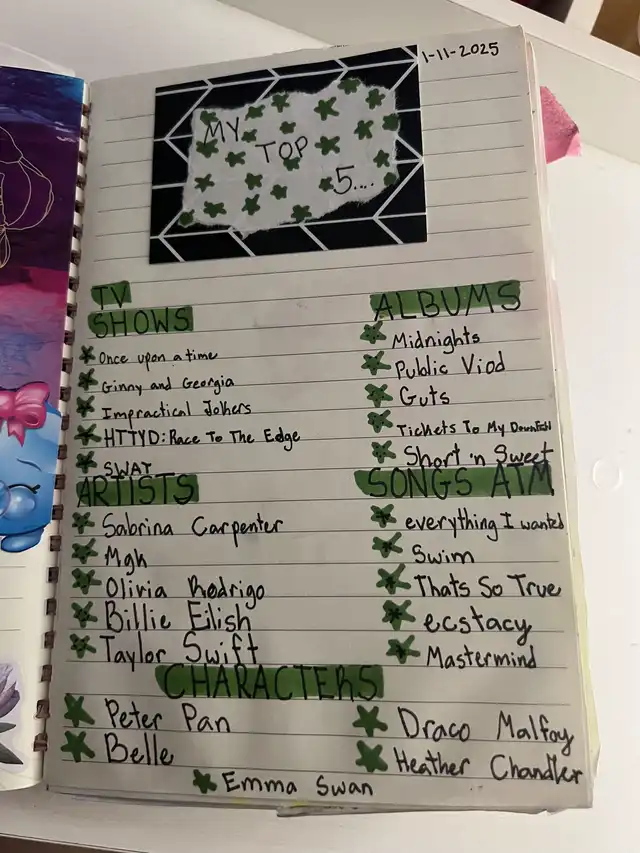 1-11-2025
MY
TOP
5....
TV
SHOWS
Once upon a time
Ginny and Georgia
Impractical Jokers
HTTYD: Race To The Edge
SWAT
ALBUMS
Midnights
Public Viod
Guts
Tickets To My Downfall
Short 'n Sweet
ARTISTS
Sabrina Carpenter
Mgk
Olivia Rodrigo
Billie Eilish
Taylor Swift
SONGS ATM
everything I wanted
Swim
Thats So True
ecstacy
Mastermind
CHARACTERS
Peter Pan
Belle
Draco Malfoy
Heather Chandler
Emma Swan